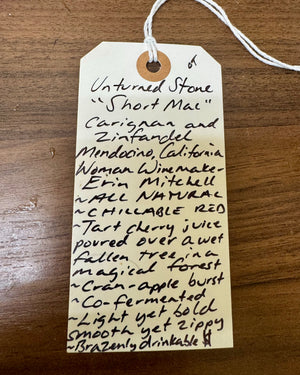 Unturned Stone
"Short Mac"
Carignan and
Zinfandel
Mendocino, California
Woman Winemaker-
Erin Mitchell
~ALL NATURAL
~CHILLABLE RED
~Tart cherry juice
poured over a wet
fallen tree in a
magical forest
~Cran-apple burst
~Co-fermented
~Light yet bold
smooth yet zippy
~Brazenly drinkable